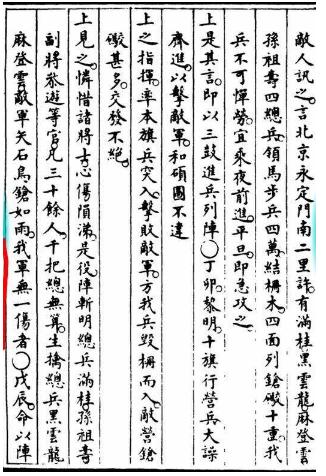 敵人訊之言北京永定門南二里許有滿桂黑雲龍麻登雲
孫祖壽四總兵領馬步兵四萬結柵木四面列鎗礮十重我
兵不可憚勞宜乘夜前進平旦即急攻之
上是其言即以三鼓進兵列陣○丁卯黎明十旗行營兵大譟
齊進以擊敵軍和碩圖不違
上之指揮率本旗兵突入擊敗敵軍方我兵毀柵而入敵營鎗
礮甚多交發不絕
上見之憐惜諸將士心傷隕涕是役陣斬明總兵滿桂孫祖壽
副將叅遊等官凡三十餘人千把總無算生擒總兵黑雲龍
麻登雲敵軍矢石鳥鎗如雨我軍無一傷者○戊辰命以陣